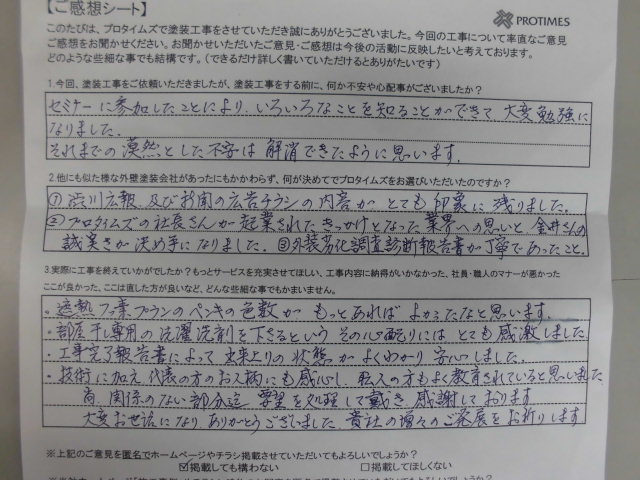 【ご感想シート】
PROTIMES
このたびは、プロタイムズで塗装工事をさせていただき誠にありがとうございました。今回の工事について率直なご意見
ご感想をお聞かせください。お聞かせいただいたご意見・ご感想は今後の活動に反映したいと考えております。
どのような些細な事でも結構です。（できるだけ詳しく書いていただけるとありがたいです）
1.今回、塗装工事をご依頼いただきましたが、塗装工事をする前に、何か不安や心配事がございましたか？
セミナーに参加したことにより、いろいろなことを知ることができて大変勉強に
なりました。
それまでの漠然とした不安は解消できたように思います。
2.他にも似た様な外壁塗装会社があったにもかかわらず、何が決めてでプロタイムズをお選びいただいたのですか？
①渋川広報、及び新聞の広告チラシの内容がとても印象に残りました。
②プロタイムズの社長さんが起業されたきっかけとなった業界への思いと、金井さんの
誠実さが決め手になりました。③外装劣化調査診断報告書が丁寧であったこと。
3.実際に工事を終えていかがでしたか？もっとサービスを充実させてほしい、工事内容に納得がいかなかった、社員・職人のマナーが悪かった
ここが良かった、ここは直した方が良いなど、どんな些細な事でもかまいません。
・遮熱 ブラウンのペンキの色数がもっとあればよかったなと思います。
・部屋干し専用の洗濯洗剤を下さるというその心配りにはとても感激しました
・工事完了報告書によって出来上りの状態がよくわかり安心しました。
・技術に加え、代表の方のお人柄にも感心し、 の方もよく教育されていると思いました
尚、関係のない部分迄 を処理して戴き、感謝しております
大変お世話になり、ありがとうございました。貴社の増々のご発展をお祈りします
※上記のご意見を匿名でホームページやチラシ掲載させていただいてもよろしいでしょうか？
☑掲載しても構わない □掲載してほしくない